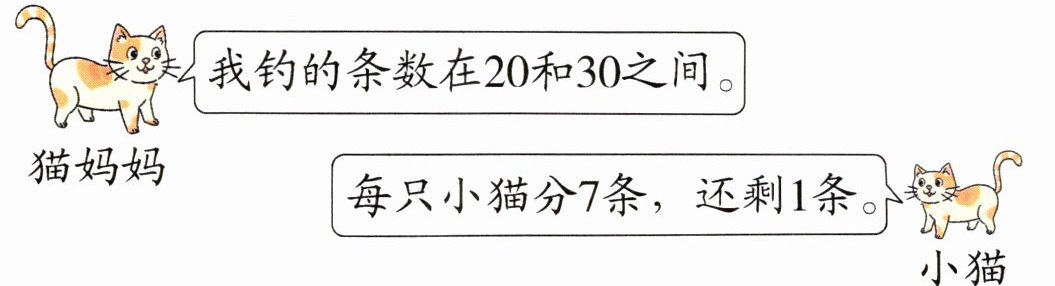 我钓的条数在20和30之间。
猫妈妈
每只小猫分7条，还剩1条。
小猫